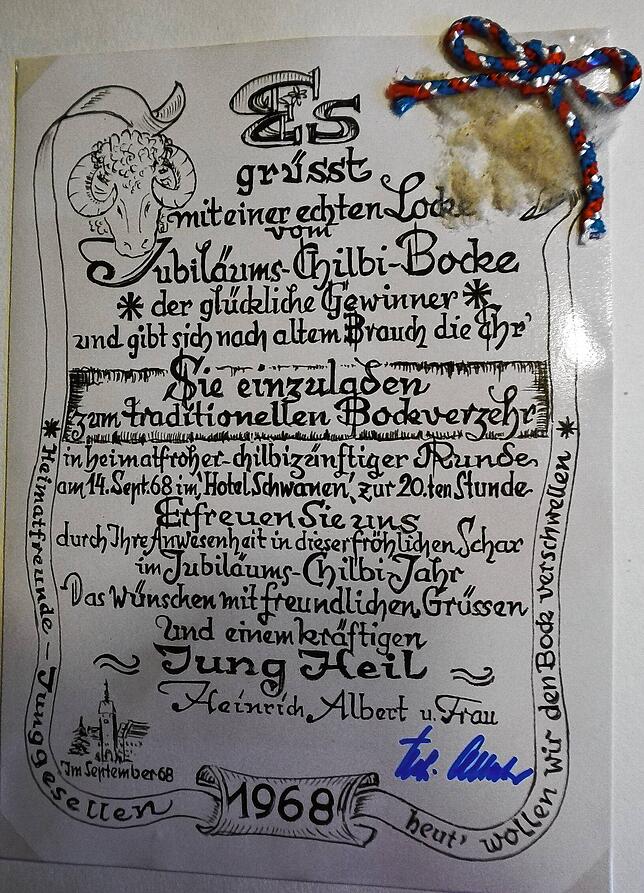 Es
grüsst
mit einer echten Locke
vom
Jubiläums-Chilbi-Bocke
* der glückliche Gewinner *
und gibt sich nach altem Brauch die Ehr'
Sie einzuladen
zum traditionellen Bockverzehr
in heimatfroher-chilbizünftiger Runde
am 14. Sept. 68 im 'Hotel Schwanen', zur 20.ten Stunde
Erfreuen Sie uns
durch Ihre Anwesenheit in dieser fröhlichen Schar
im Jubiläums-Chilbi-Jahr
Das wünschen mit freundlichen Grüssen
und einem kräftigen
~ Jung Heil ~
Heinrich Albert u. Frau
Im September 68
1968
* Heimatfreunde - Junggesellen
heut' wollen wir den Bock verschwellen *